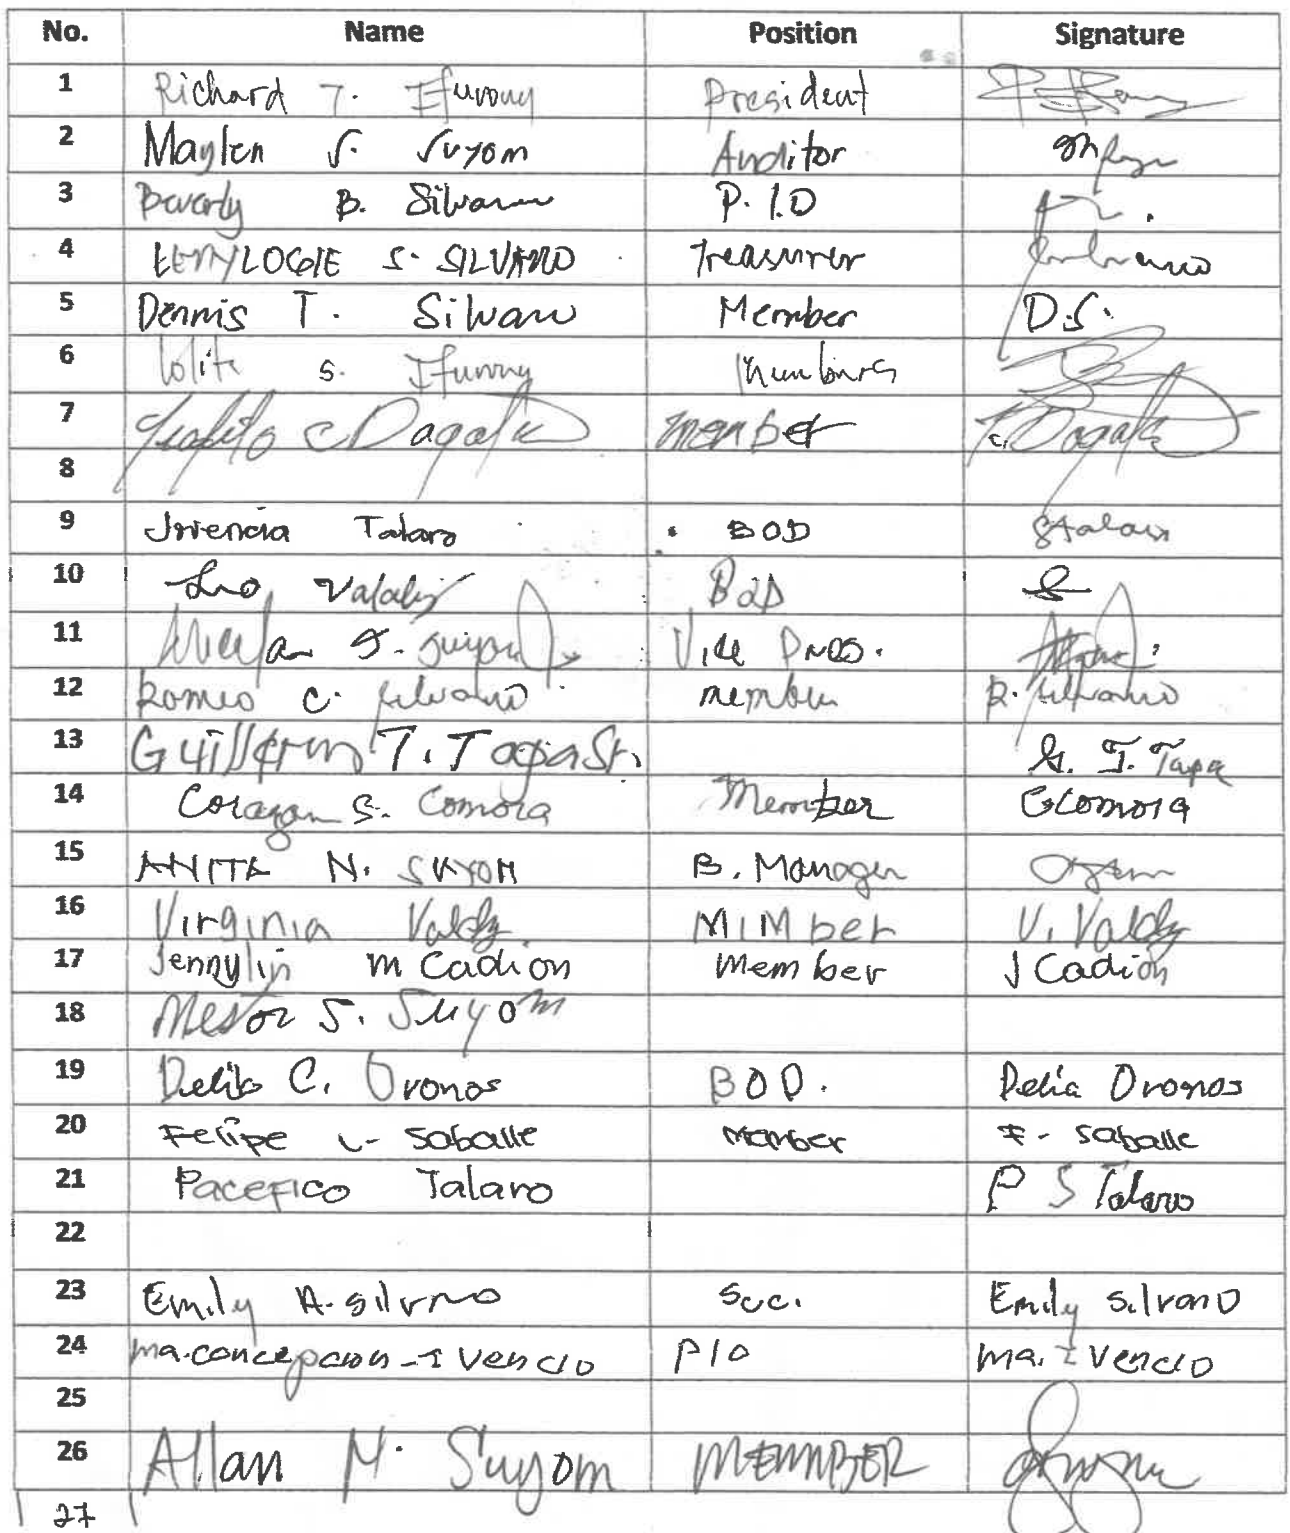 No. Name Position Signature
1 Richard T. Ifurung President
2 Maylen S. Suyom Auditor
3 Beverly B. Silvano P.I.O
4 LENYLOGIE S. SILVANO Treasurer
5 Dennis T. Silvano Member D.S.
6 Lolita S. Ifurung
7 C Dagala member C. Dagala
8
9 Jovencia Talaro BOD STalaro
10 Leo BOD
11 S. Suyom Vice Pres.
12 Romeo C. Silvano member R. Silvano
13 Guillermo T. Tapia Sr. G. T. Tapia
14 Corazon S. Comora Member CComora
15 ANITA N. SUYOM B. Manager
16 Virginia Valdz MIMber V. Valdz
17 Jennylin M Cadion Member J Cadion
18 Nestor S. Suyom
19 Delia C. Oronos BOD. Delia Oronos
20 Felipe L- Saballe Member F- Saballe
21 Pacefico Talaro P S Talaro
22
23 Emily A. Silvano Sec. Emily Silvano
24 Ma. Concepcion I Vencio PIO Ma. I Vencio
25
26 Allan N. Suyom MEMBER
27